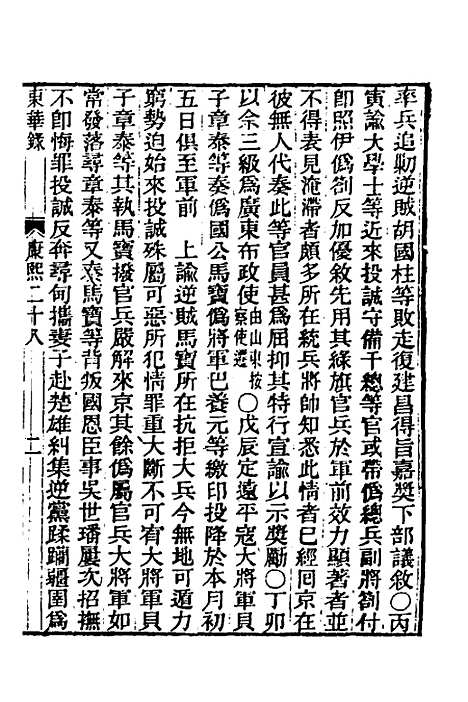 率兵追勦逆賊胡國柱等敗走復建昌得旨嘉獎下部議敘〇丙
寅諭大學士等近來投誠守備千總等官或帶僞總兵副將劄付
卽照伊僞劄反加優敘先用其綠旗官兵於軍前效力顯著者並
不得表見淹滯者頗多所在統兵將帥知悉此情者已經回京在
彼無人代奏此等官員甚爲屈抑其特行宣諭以示獎勵〇丁卯
以佘三級爲廣東布政使由山東按察使遷〇戊辰定遠平寇大將軍貝
子章泰等奏僞國公馬寶僞將軍巴養元等繳印投降於本月初
五日俱至軍前 上諭逆賊馬寶所在抗拒大兵今無地可遁力
窮勢迫始來投誠殊屬可惡所犯情罪重大斷不可宥大將軍貝
子章泰等其執馬寶撥官兵嚴解來京其餘僞屬官兵大將軍如
常發落尋章泰等又奏馬寶等背叛國恩臣事吳世璠屢次招撫
不卽悔罪投誠反奔尋甸攜妻子赴楚雄糾集逆黨蹂躪疆圉爲
東華錄
康熙二十八
十一